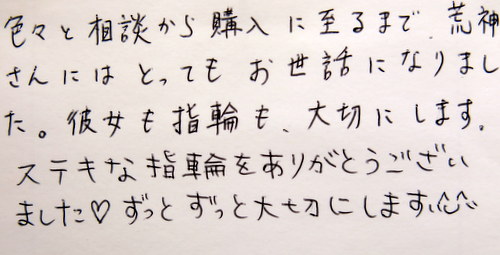 色々と相談から購入に至るまで、荒神
さんにはとってもお世話になりまし
た。彼女も指輪も、大切にします。
ステキな指輪をありがとうござい
ました♡ずっとずっと大切にします。^^